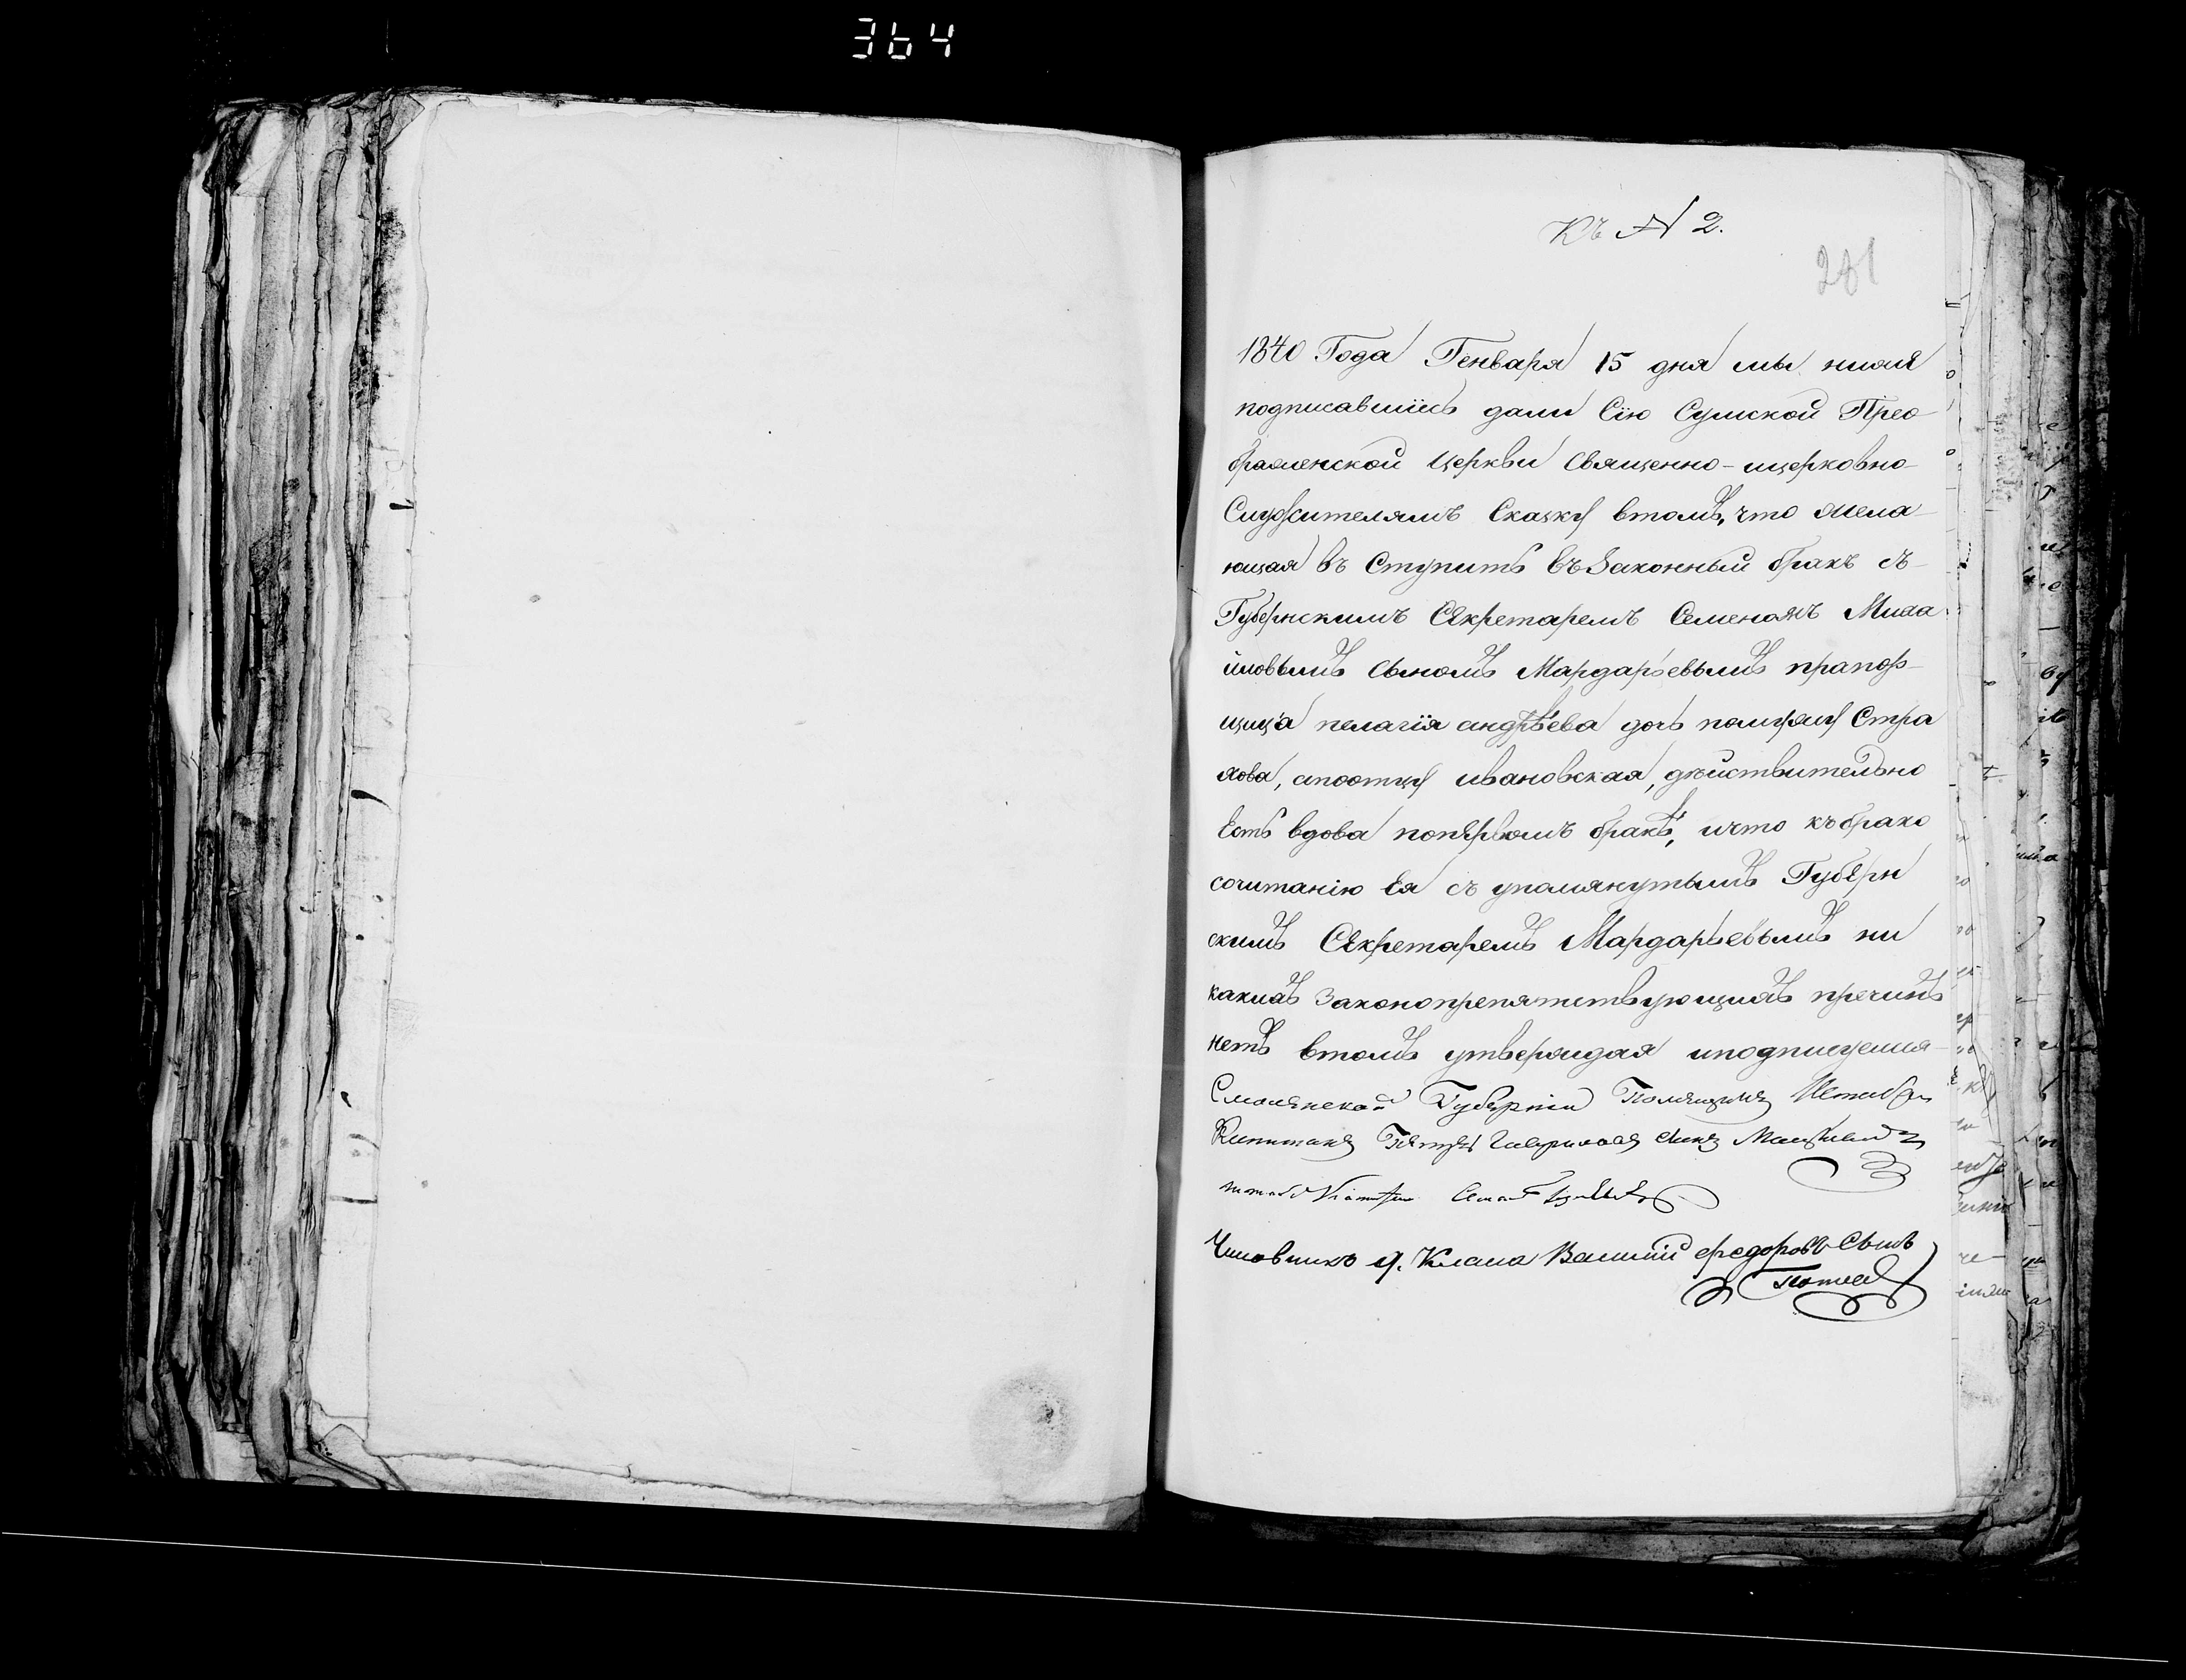 364
Къ № 2.
281
1840 Года Генваря 15 дня мы ниже
подписавшіись дали Сію Сумской Прео-
браженской Церкви Священно-ицерковно-
Служителямъ Сказку втомъ, что жела-
ющая въ Ступить въ Законный бракъ съ-
Губернскимъ Секретаремъ Семеномъ Миха
йловымъ сыномъ Мардарьевымъ прапор-
щица пелагія андрѣева дочь помужу Стра
хова, апоотцу ивановская, дѣйствительно
Есть вдова попервомъ бракѣ, ичто къ брако
сочитанію Ея съ упомянутымъ Губерн
скимъ Секретаремъ Мардарьевымъ ни
какихъ законопрепятствующихъ пречинъ
нетъ втомъ утверждая иподписуемся
Смоленской Губерніи Помещикъ Штабсъ
Капитанъ Петръ Гавриловъ сынъ
Чиновникъ 9. Класа Василій федоровъ Сынъ